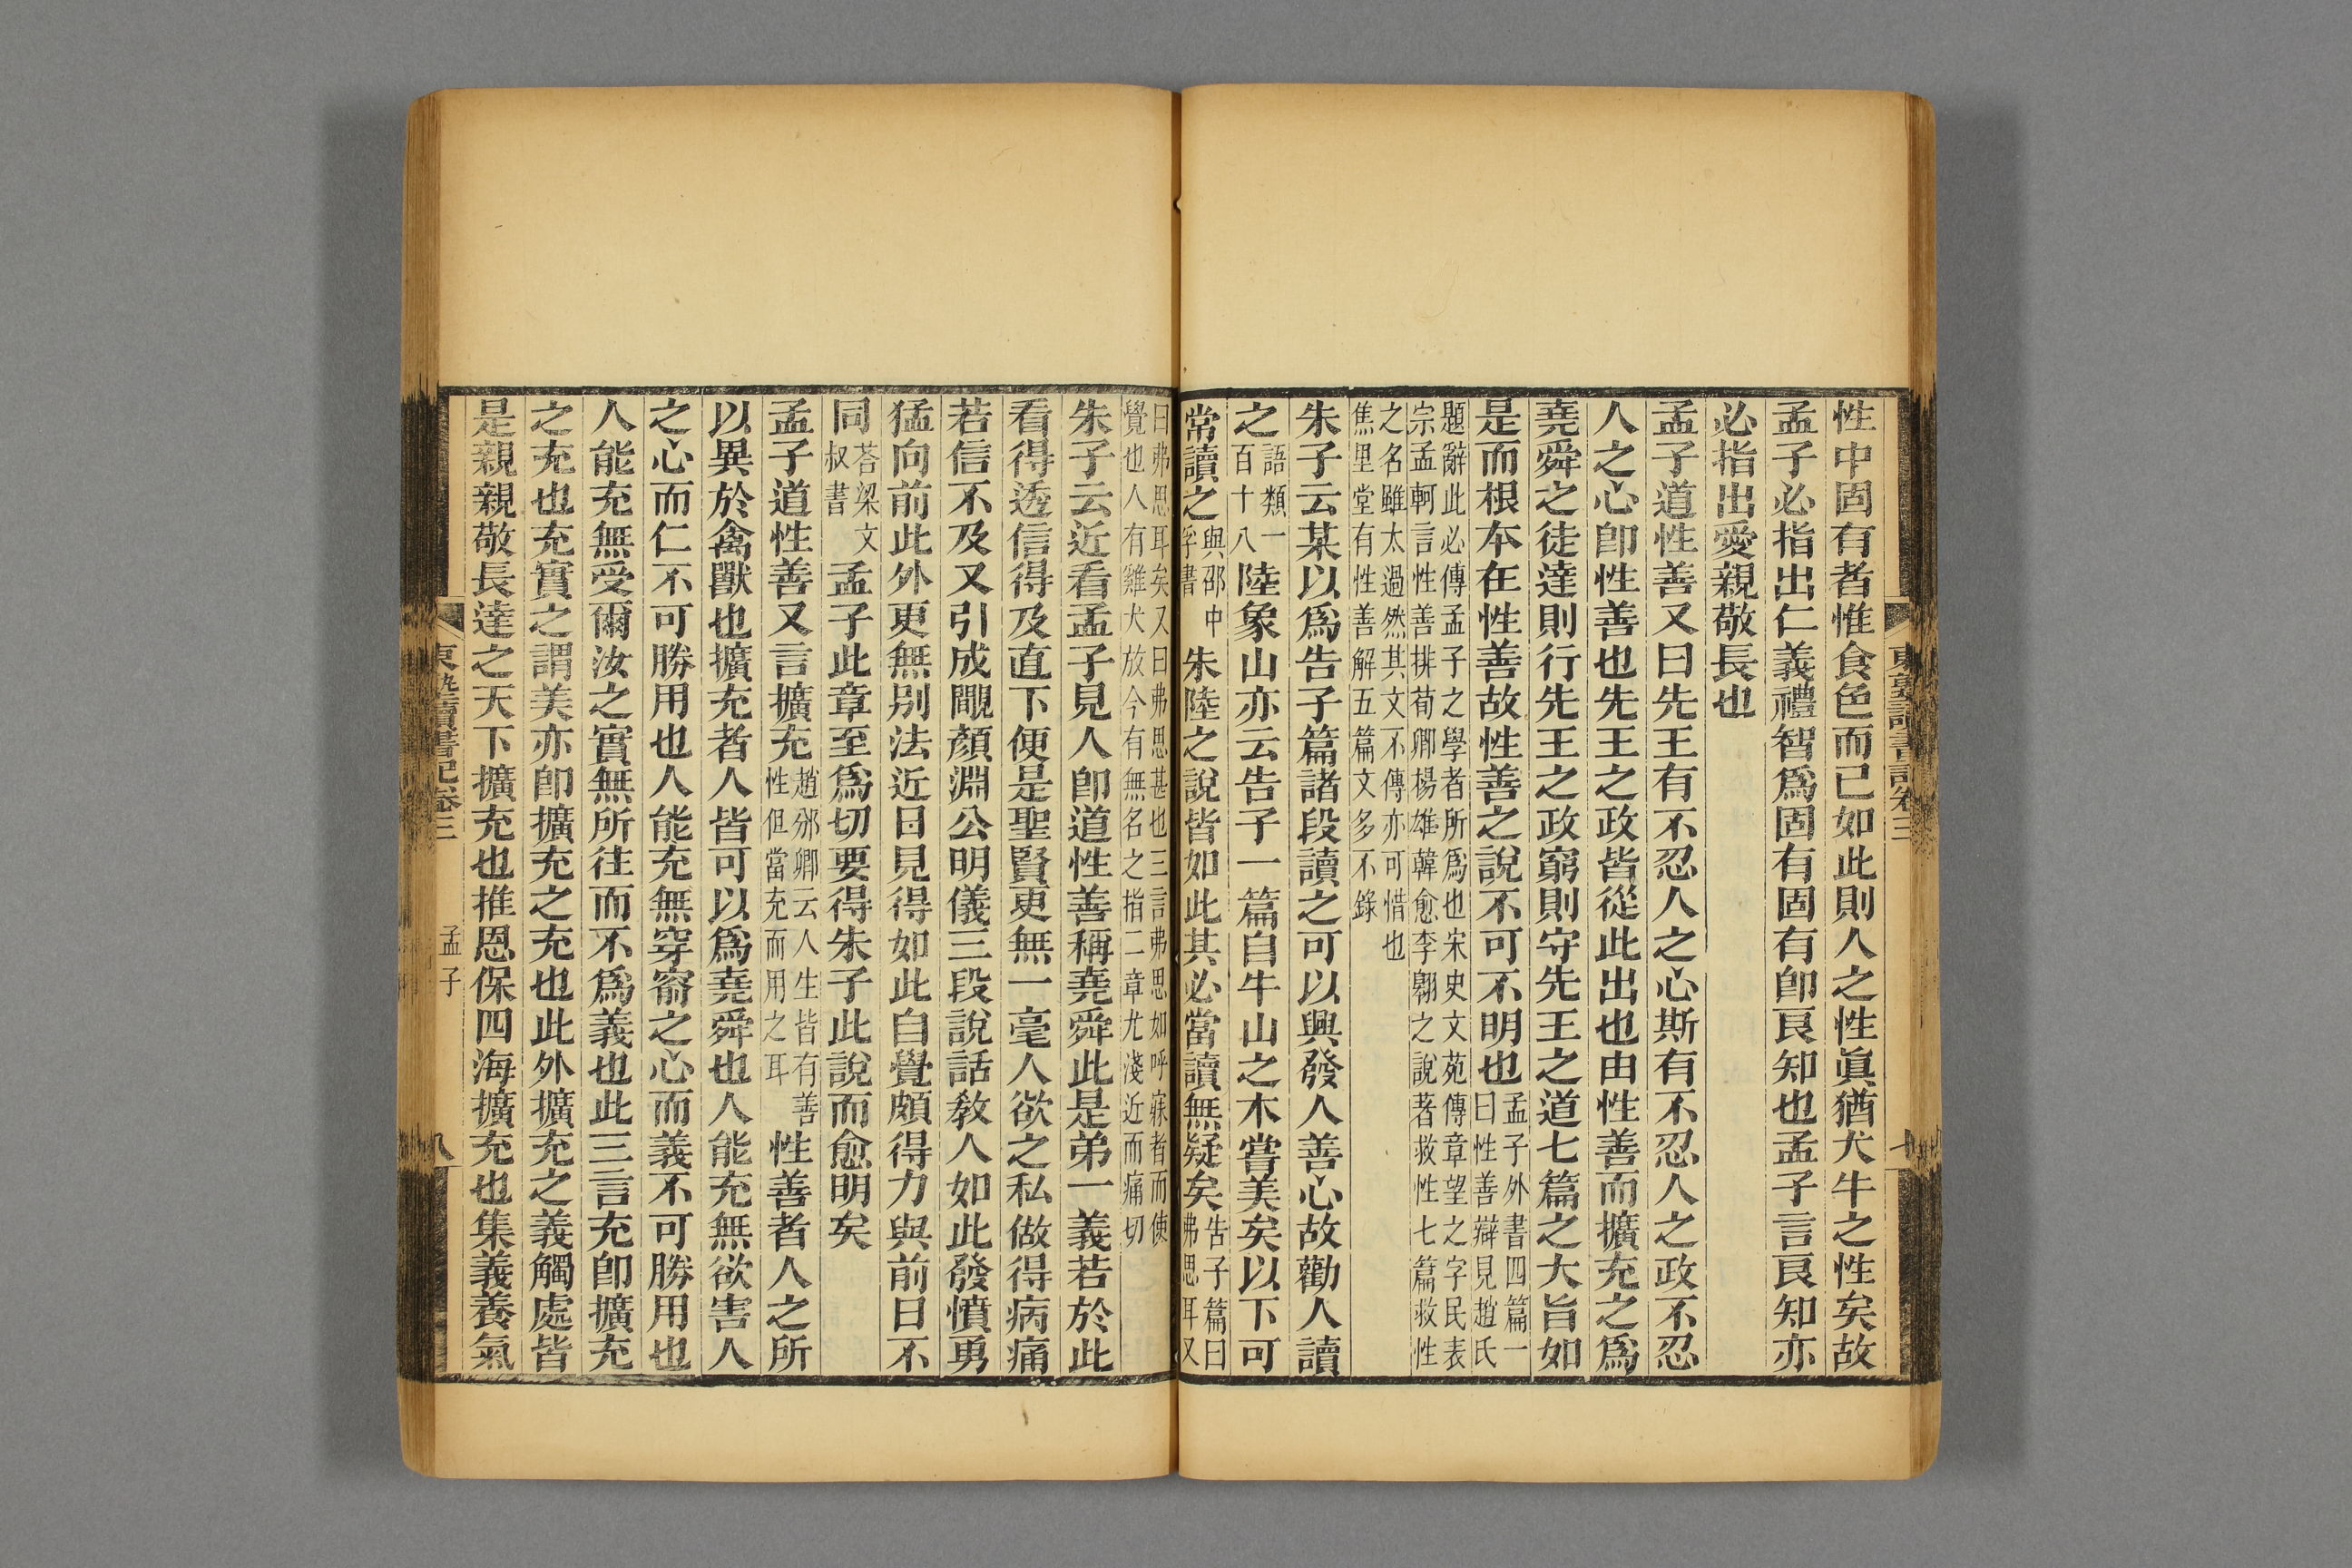 東塾讀書記卷三
七
性中固有者惟食色而已如此則人之性眞猶犬牛之性矣故
孟子必指出仁義禮智爲固有固有卽良知也孟子言良知亦
必指出愛親敬長也
孟子道性善又曰先王有不忍人之心斯有不忍人之政不忍
人之心卽性善也先王之政皆從此出也由性善而擴充之爲
堯舜之徒達則行先王之政窮則守先王之道七篇之大旨如
是而根本在性善故性善之說不可不明也
孟子外書四篇一
曰性善辯見趙氏
題辭此必傳孟子之學者所爲也宋史文苑傳章望之字民表
宗孟軻言性善排荀卿楊雄韓愈李翺之說著救性七篇救性
之名雖太過然其文不傳亦可惜也
焦里堂有性善解五篇文多不錄
朱子云某以爲告子篇諸段讀之可以興發人善心故勸人讀
之
語類一
百十八
陸象山亦云告子一篇自牛山之木嘗美矣以下可
常讀之
與邵中
孚書
朱陸之說皆如此其必當讀無疑矣
告子篇曰
弗思耳又
曰弗思耳矣又曰弗思甚也三言弗思如呼寐者而使
覺也人有雞犬放今有無名之指二章尤淺近而痛切
朱子云近看孟子見人卽道性善稱堯舜此是弟一義若於此
看得透信得及直下便是聖賢更無一毫人欲之私做得病痛
若信不及又引成覵顏淵公明儀三段說話敎人如此發憤勇
猛向前此外更無別法近日見得如此自覺頗得力與前日不
同
荅梁文
叔書
孟子此章至爲切要得朱子此說而愈明矣
孟子道性善又言擴充
趙邠卿云人生皆有善
性但當充而用之耳
性善者人之所
以異於禽獸也擴充者人皆可以爲堯舜也人能充無欲害人
之心而仁不可勝用也人能充無穿窬之心而義不可勝用也
人能充無受爾汝之實無所往而不爲義也此三言充卽擴充
之充也充實之謂美亦卽擴充之充也此外擴充之義觸處皆
是親親敬長達之天下擴充也推恩保四海擴充也集義養氣
東塾讀書記卷三
孟子
八